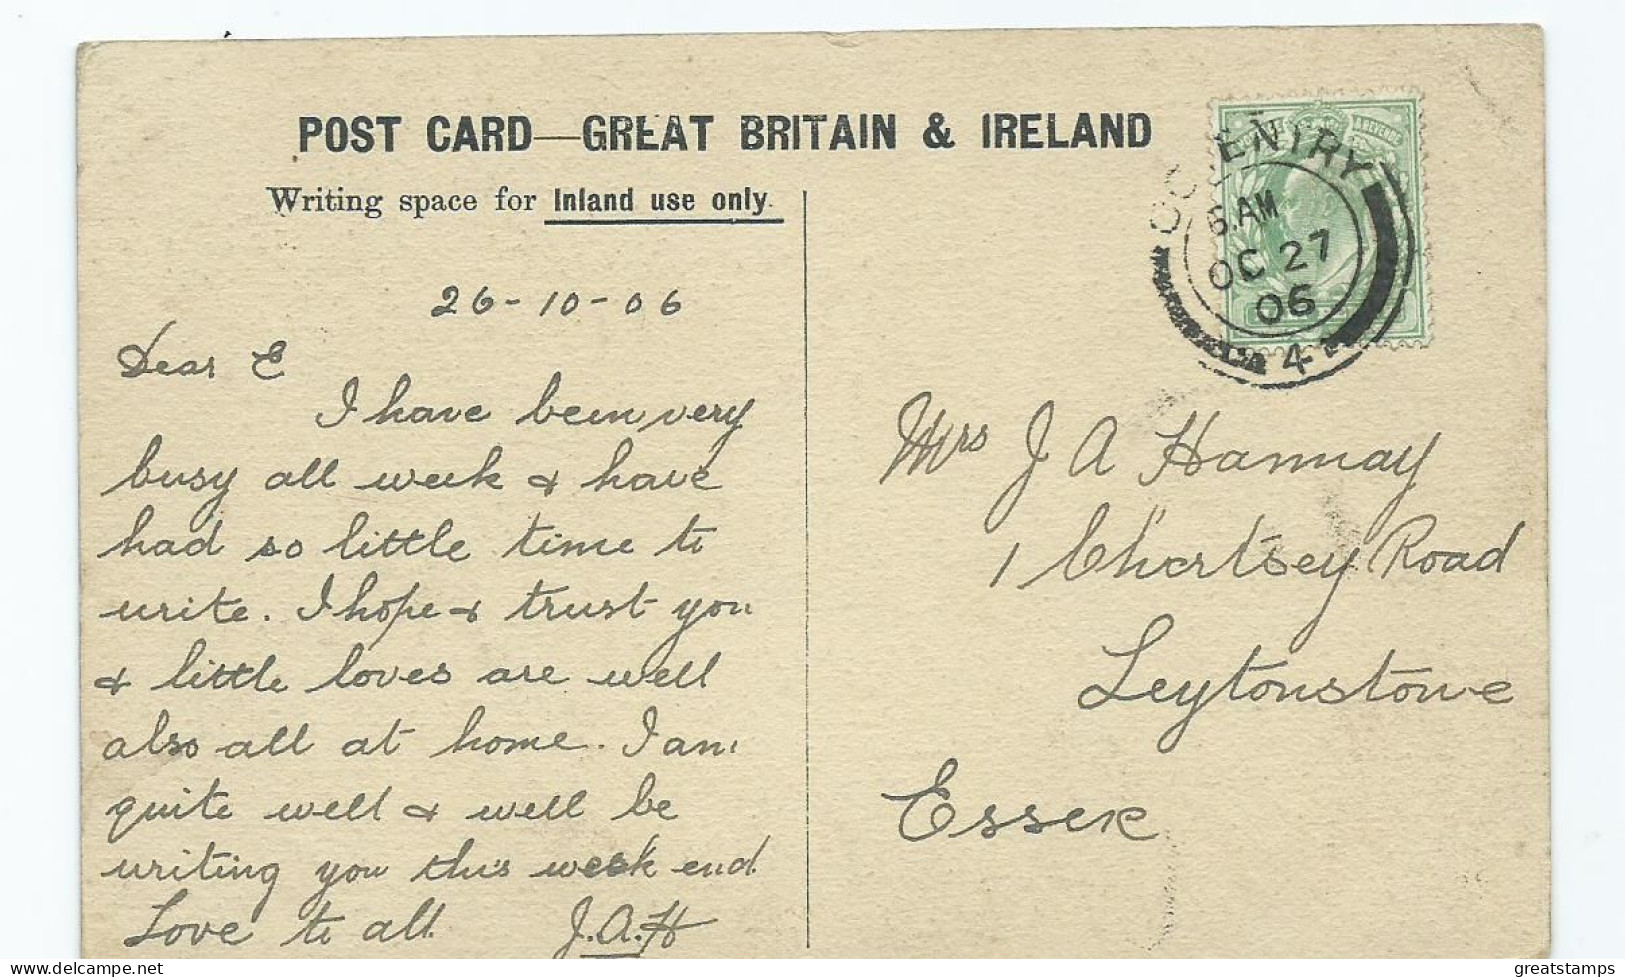 POST CARD—GREAT BRITAIN & IRELAND
Writing space for Inland use only.
26-10-06
Dear E
I have been very
busy all week & have
had so little time to
write. I hope & trust you
& little loves are well
also all at home. I am
quite well & well be
writing you this week end
Love to all. J.A.H
COVENTRY
6.AM
OC 27
06
4
Mrs J A Hannay
1 Chertsey Road
Leytonstone
Essex
greatstamps